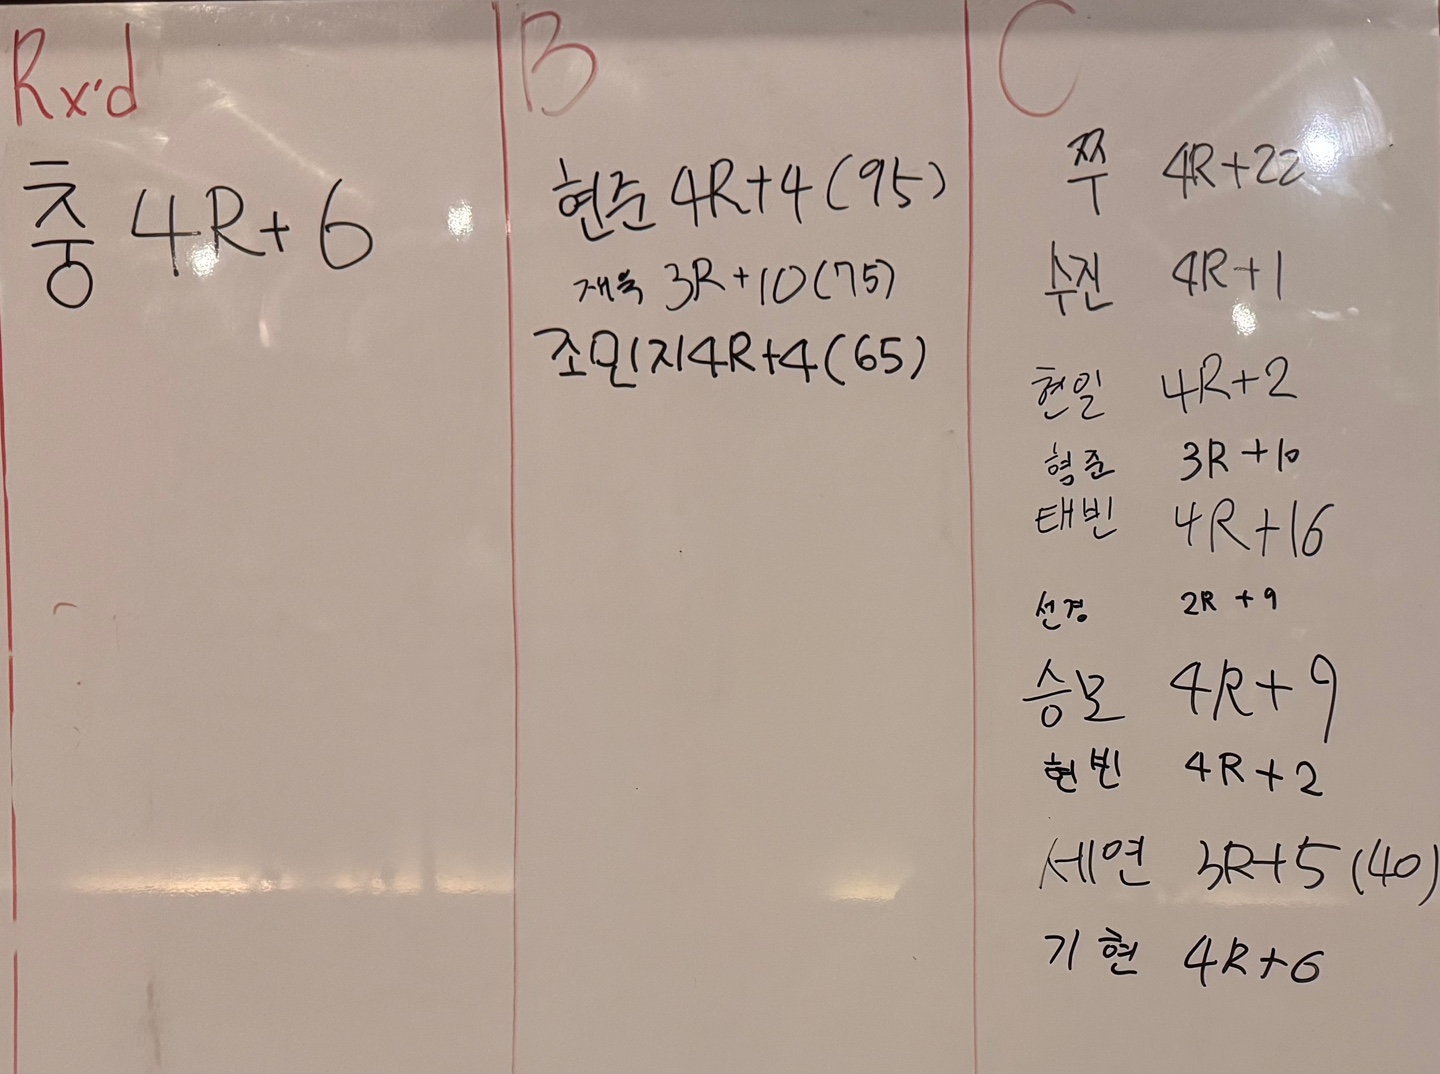 Rx'd
충 4R+6
B
현준 4R+4(95)
재욱 3R+10(75)
조민지 4R+4(65)
C
쭈 4R+22
수진 4R+1
현일 4R+2
형준 3R+10
태빈 4R+16
선경 2R+9
승모 4R+9
현빈 4R+2
세연 3R+5(40)
기현 4R+6